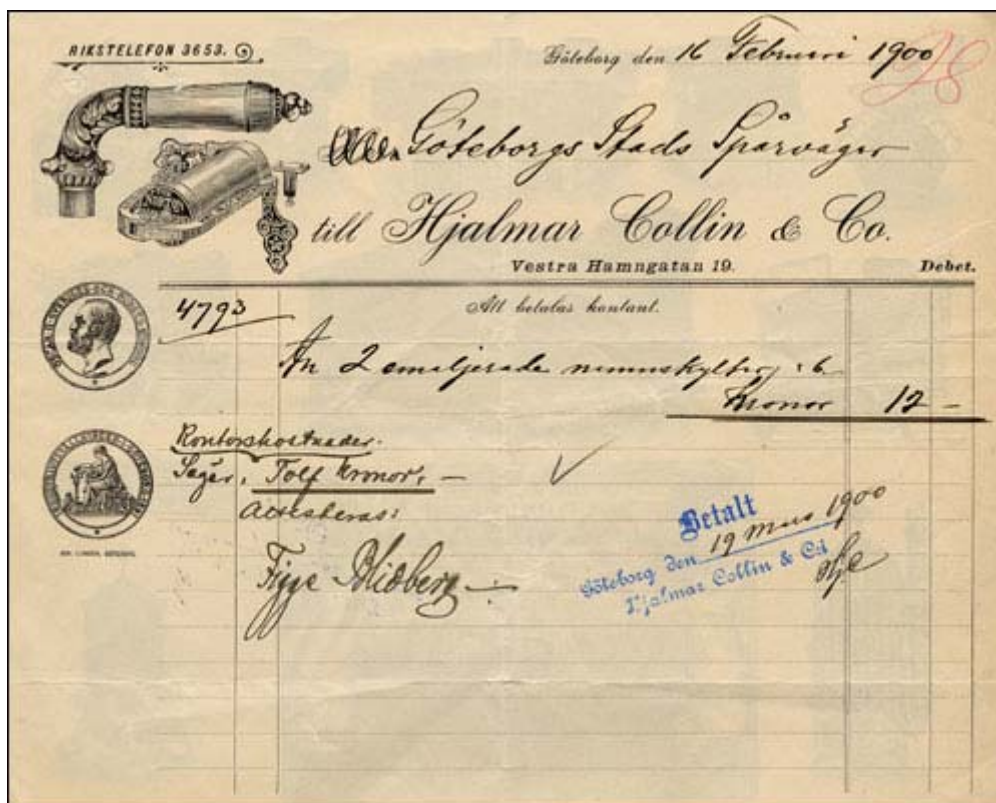 RIKSTELEFON 3653.
Göteborg den 16 Februari 1900
Göteborgs Stads Spårvägar
till Hjalmar Collin & Co.
Vestra Hamngatan 19.
Debet.
4793
Att betalas kontant.
An 2 emaljerade namnskyltar : 6
Kronor 12 —
Kontorskostnader.
Säger, Tolf Kronor, —
Attesteras:
Blidberg
Betalt
Göteborg den 19 Mars 1900
Hjalmar Collin & Co